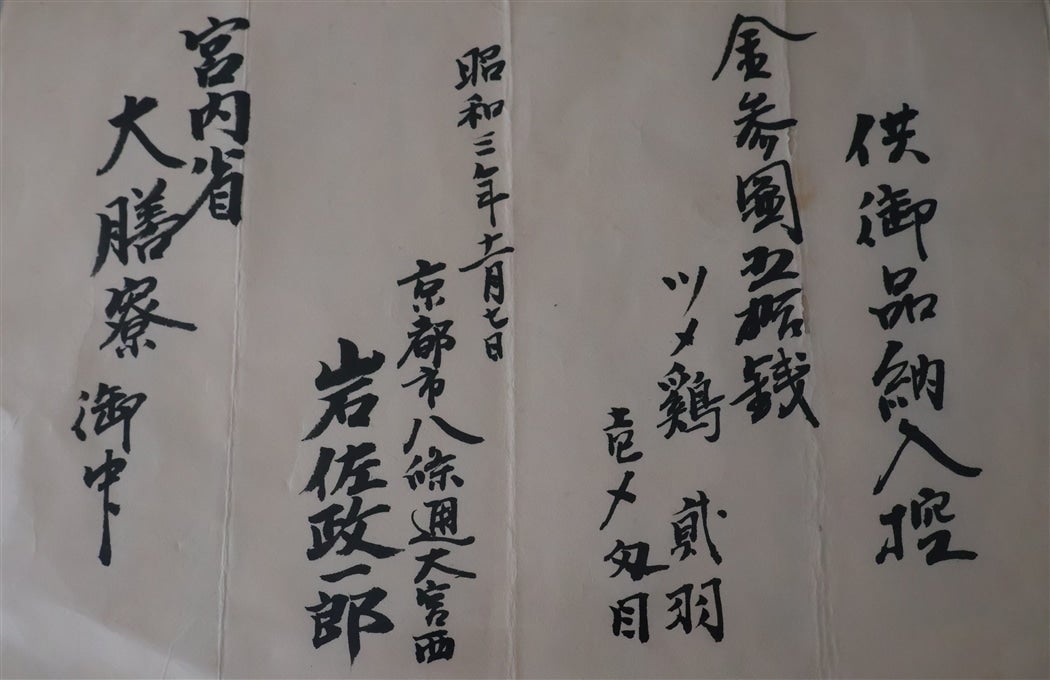 供御品納入控
金参圓五拾銭
ツメ鶏 貳羽
壱メ匁目
昭和三年十一月七日
京都市八條通大宮西
岩佐政一郎
宮内省
大膳寮 御中